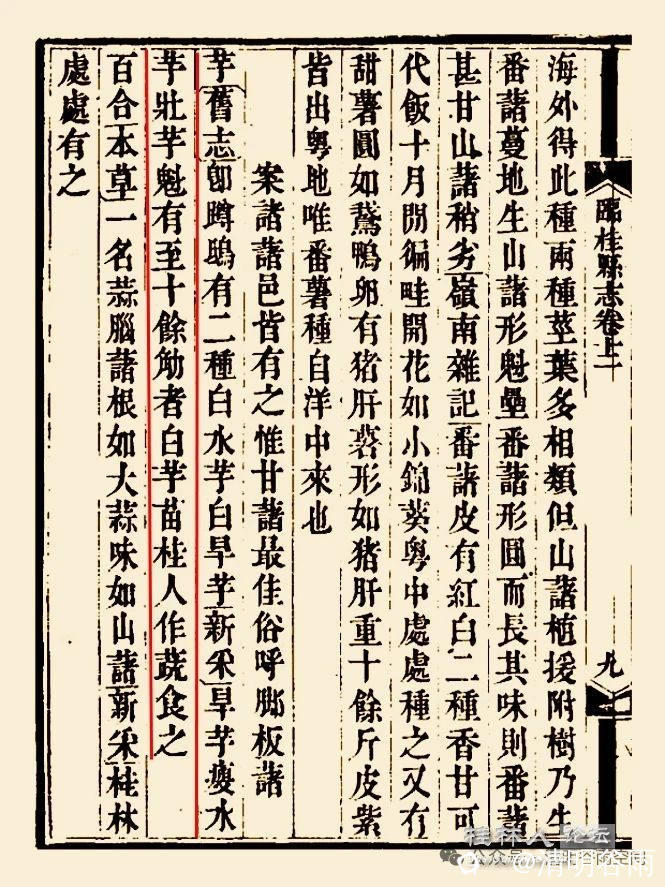 臨桂縣志卷十二
九
海外得此種兩種莖葉多相類但山藷植援附樹乃生
番藷蔓地生山藷形魁壘番藷形圓而長其味則番藷
甚甘山藷稍劣嶺南雜記番藷皮有紅白二種香甘可
代飯十月間徧畦開花如小錦葵粵中處處種之又有
甜薯圓如鵞鴨卵有猪肝薯形如猪肝重十餘斤皮紫
皆出粵地唯番薯種自洋中來也
案諸藷邑皆有之惟甘藷最佳俗呼腳板藷
芋舊志卽蹲鴟有二種白水芋白旱芋新采旱芋瘦水
芋壯芋魁有至十餘觔者白芋苗桂人作蔬食之
百合本草一名蒜腦藷根如大蒜味如山藷新采桂林
處處有之
桂林人论坛
公众号
@清明谷雨